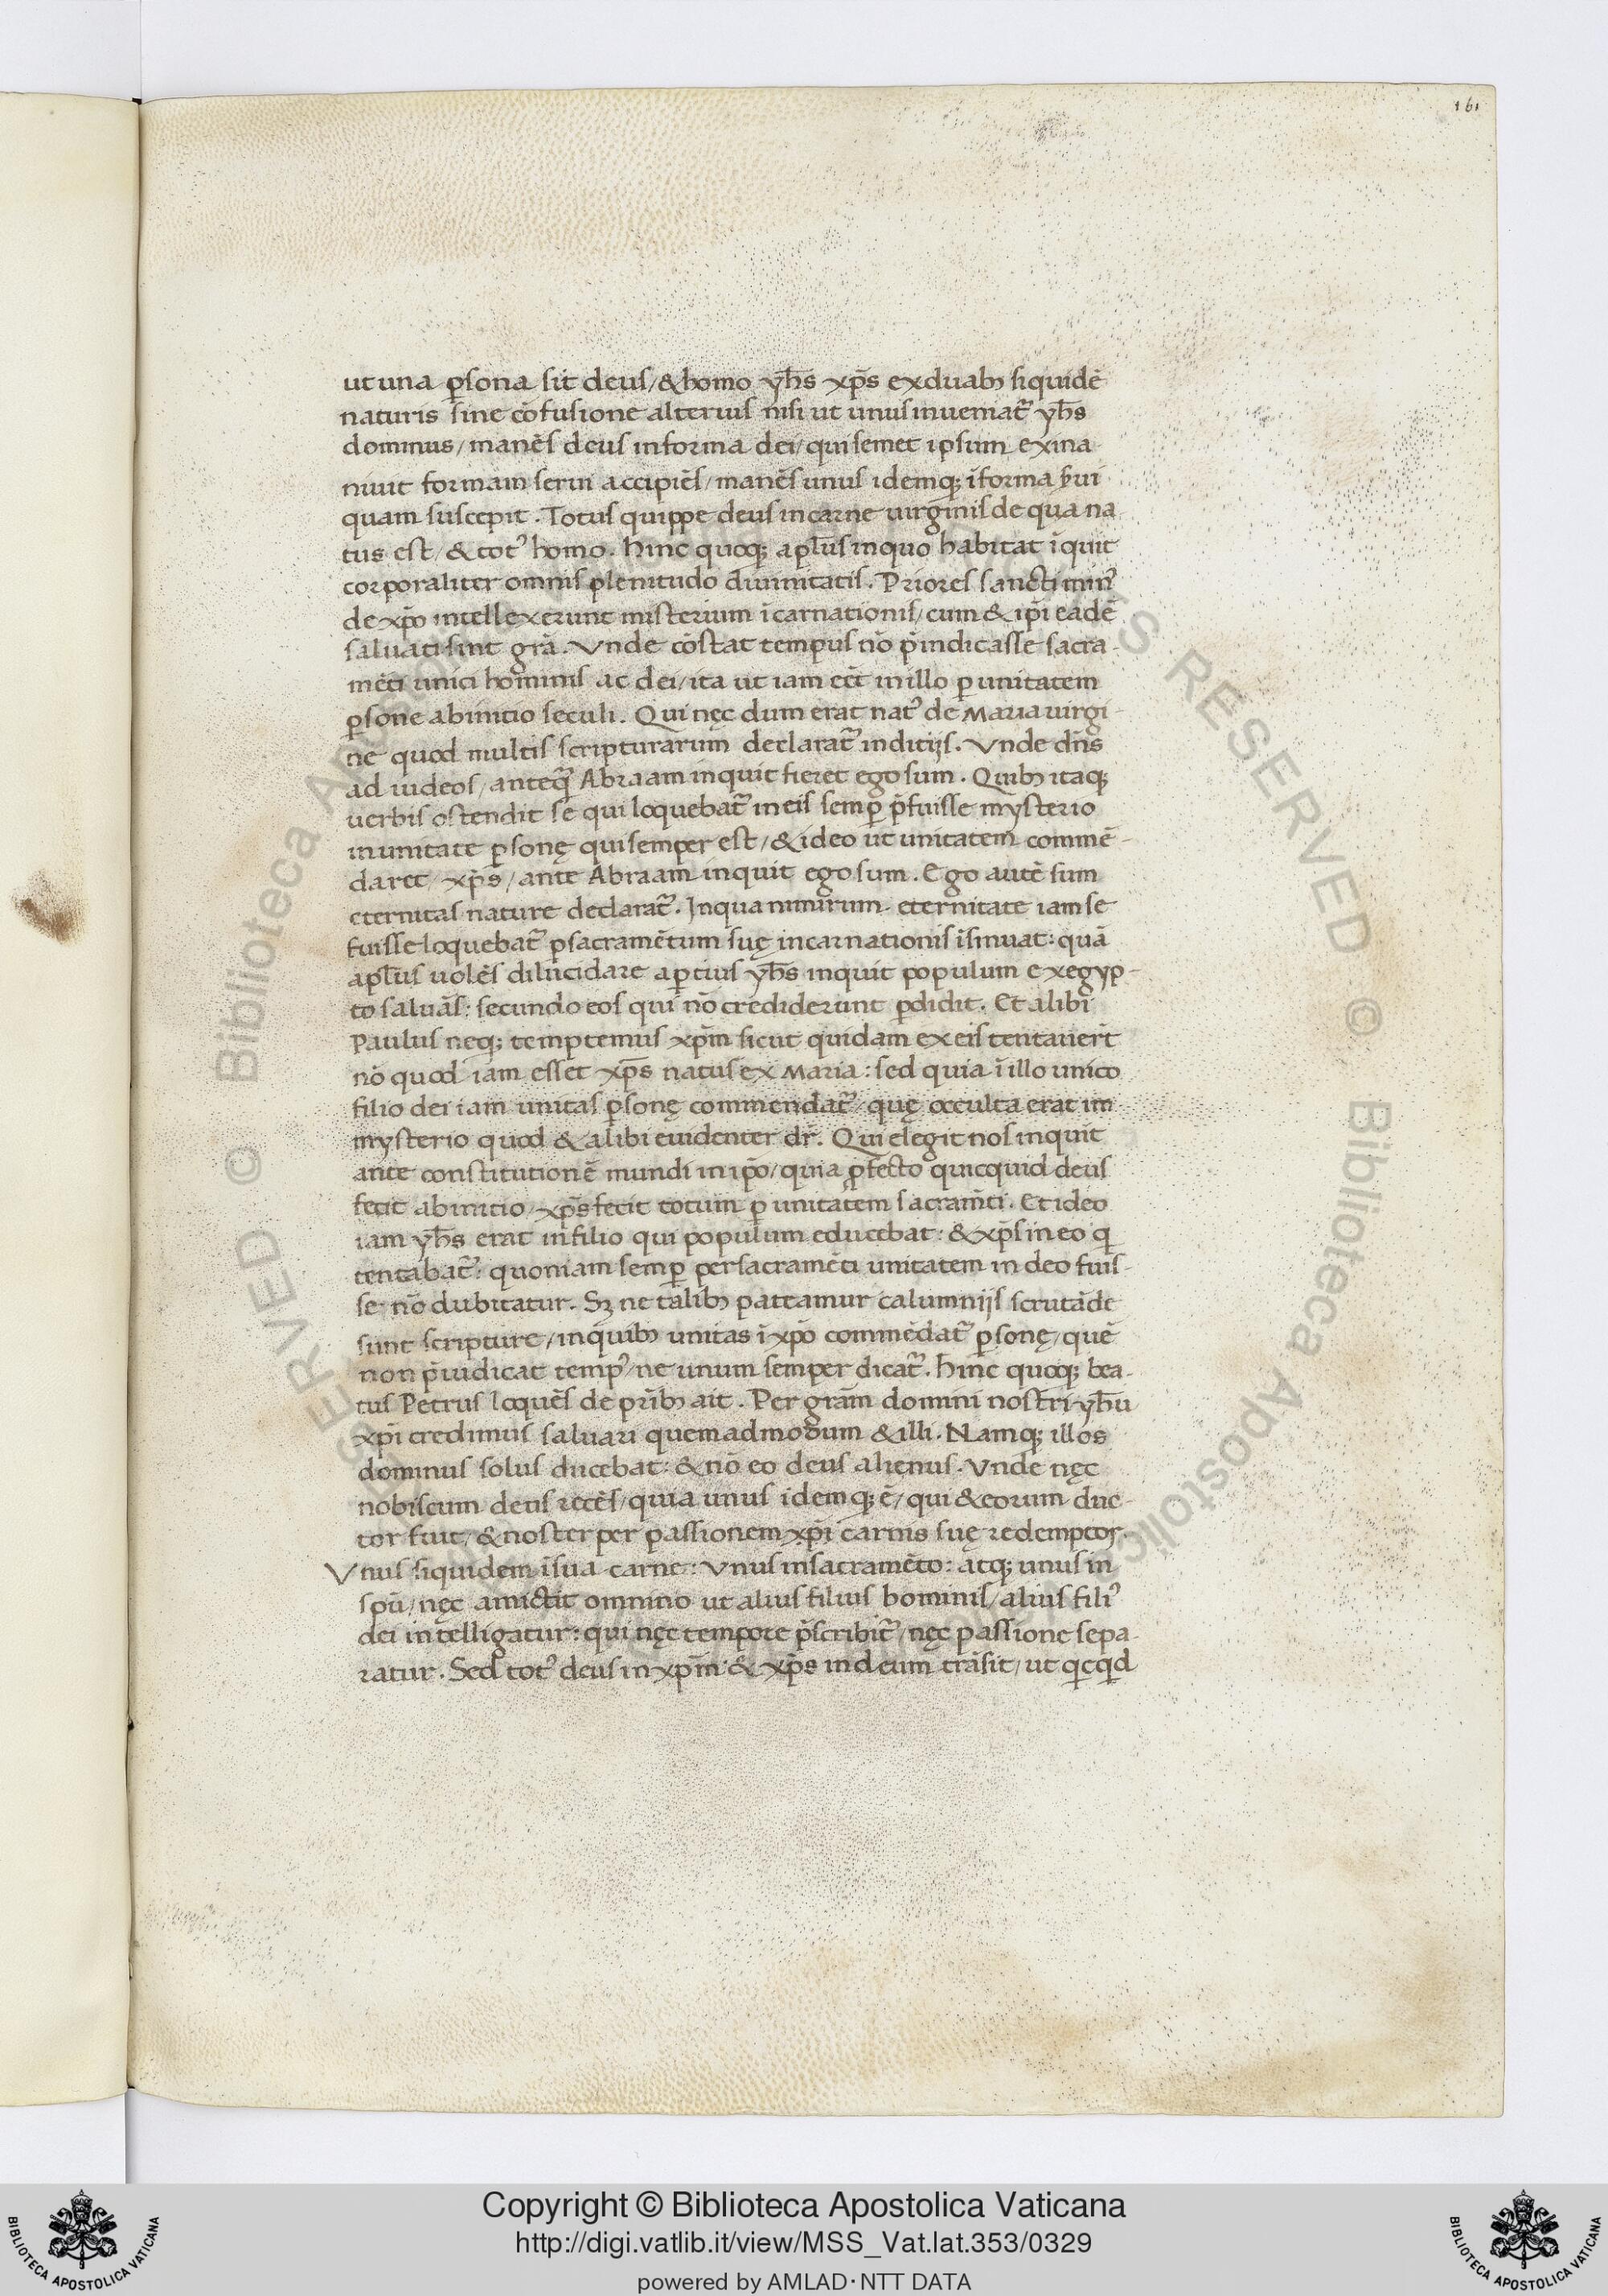 161
ut una ꝑsona sit deus/ & homo yh̅s xp̅s ex duabꝫ siquidē
naturis sine cōfusione alterius nisi ut unus inueniat᷑ yh̅s
dominus/ manēs deus in forma dei/ qui semet ipsum exina
niuit formam serui accipiēs/ manēs unus idemqꝫ ī forma s̄ui
quam suscepit. Totus quippe deus in carne uirginis de qua na
tus est/ & totꝰ homo. Hinc quoqꝫ apl̅us in quo habitat īquit
corporaliter omnis plenitudo diuinitatis. Priores sancti minꝰ
de xp̅o intellexerunt misterium īcarnationis/ cum & ip̅i eadē
saluati sint gr̅a. Vnde cōstat tempus nō p̄iudicasse sacra-
mēti unici hominis ac dei/ ita ut iam eēt in illo ꝑ unitatem
ꝑsone ab initio seculi. Qui nęc dum erat natꝰ de Maria uirgi-
ne quod multis scripturarum declarat᷑ inditijs. Vnde dn̅s
ad iudeos/ anteq̄ Abraam inquit fieret ego sum. Quibꝫ itaqꝫ
uerbis ostendit se qui loquebat᷑ in eis semꝑ p̄fuisse mysterio
in unitate ꝑsonę qui semper est/ & ideo ut unitatem commē-
daret/ xp̅s/ ante Abraam inquit ego sum. Ego autē sum
eternitas nature declarat᷑. In qua nimirum eternitate iam se
fuisse loquebat᷑ ꝑ sacramētum suę incarnationis īsinuat: quā
apl̅us uolēs dilucidare aꝑtius yh̅s inquit populum ex egyp-
to saluās: secundo eos qui nō crediderunt ꝑdidit. Et alibi
Paulus neqꝫ temptemus xp̅m sicut quidam ex eis tentauer̄t
nō quod iam esset xp̅s natus ex Maria: sed quia ī illo unico
filio dei iam unitas ꝑsonę commendat᷑/ quę occulta erat im
mysterio quod & alibi euidenter dr̅. Qui elegit nos inquit
ante constitutionē mundi in ip̅o/ quia ꝓfecto quicquid deus
fecit ab initio/ xp̅s fecit totum ꝑ unitatem sacram̄ti. Et ideo
iam yh̅s erat in filio qui populum educebat: & xp̅s in eo qͥ
tentabat᷑: quoniam semꝑ per sacramēti unitatem in deo fuis-
se nō dubitatur. Sꝫ ne talibꝫ patiamur calumnijs scrutāde
sunt scripture/ in quibꝫ unitas ī xp̅o commēdat᷑ ꝑsonę/ quē
non p̄iudicat tempꝰ/ ne unum semper dicat᷑. Hinc quoqꝫ bea-
tus Petrus loquēs de pr̄ibꝫ ait. Per gra̅m domini nostri yh̅u
xp̅i credimus saluari quemadmodum & illi. Namqꝫ illos
dominus solus ducebat: & nō eo deus alienus. Vnde nęc
nobiscum deus recēs/ quia unus idemqꝫ ē/ qui & eorum duc-
tor fuit/ & noster per passionem xp̅i carnis suę redemptor.
Vnus siquidem ī sua carne: Vnus in sacramēto: atqꝫ unus in
spū/ nęc amictit omnino ut alius filius hominis/ alius filiꝰ
dei intelligatur: qui nęc tempore p̄scribit᷑/ nęc passione sepa-
ratur. Sed totꝰ deus in xp̅m: & xp̅s in deum trāsit/ ut qͥcqͥd
Copyright © Biblioteca Apostolica Vaticana
http://digi.vatlib.it/view/MSS_Vat.lat.353/0329
powered by AMLAD·NTT DATA